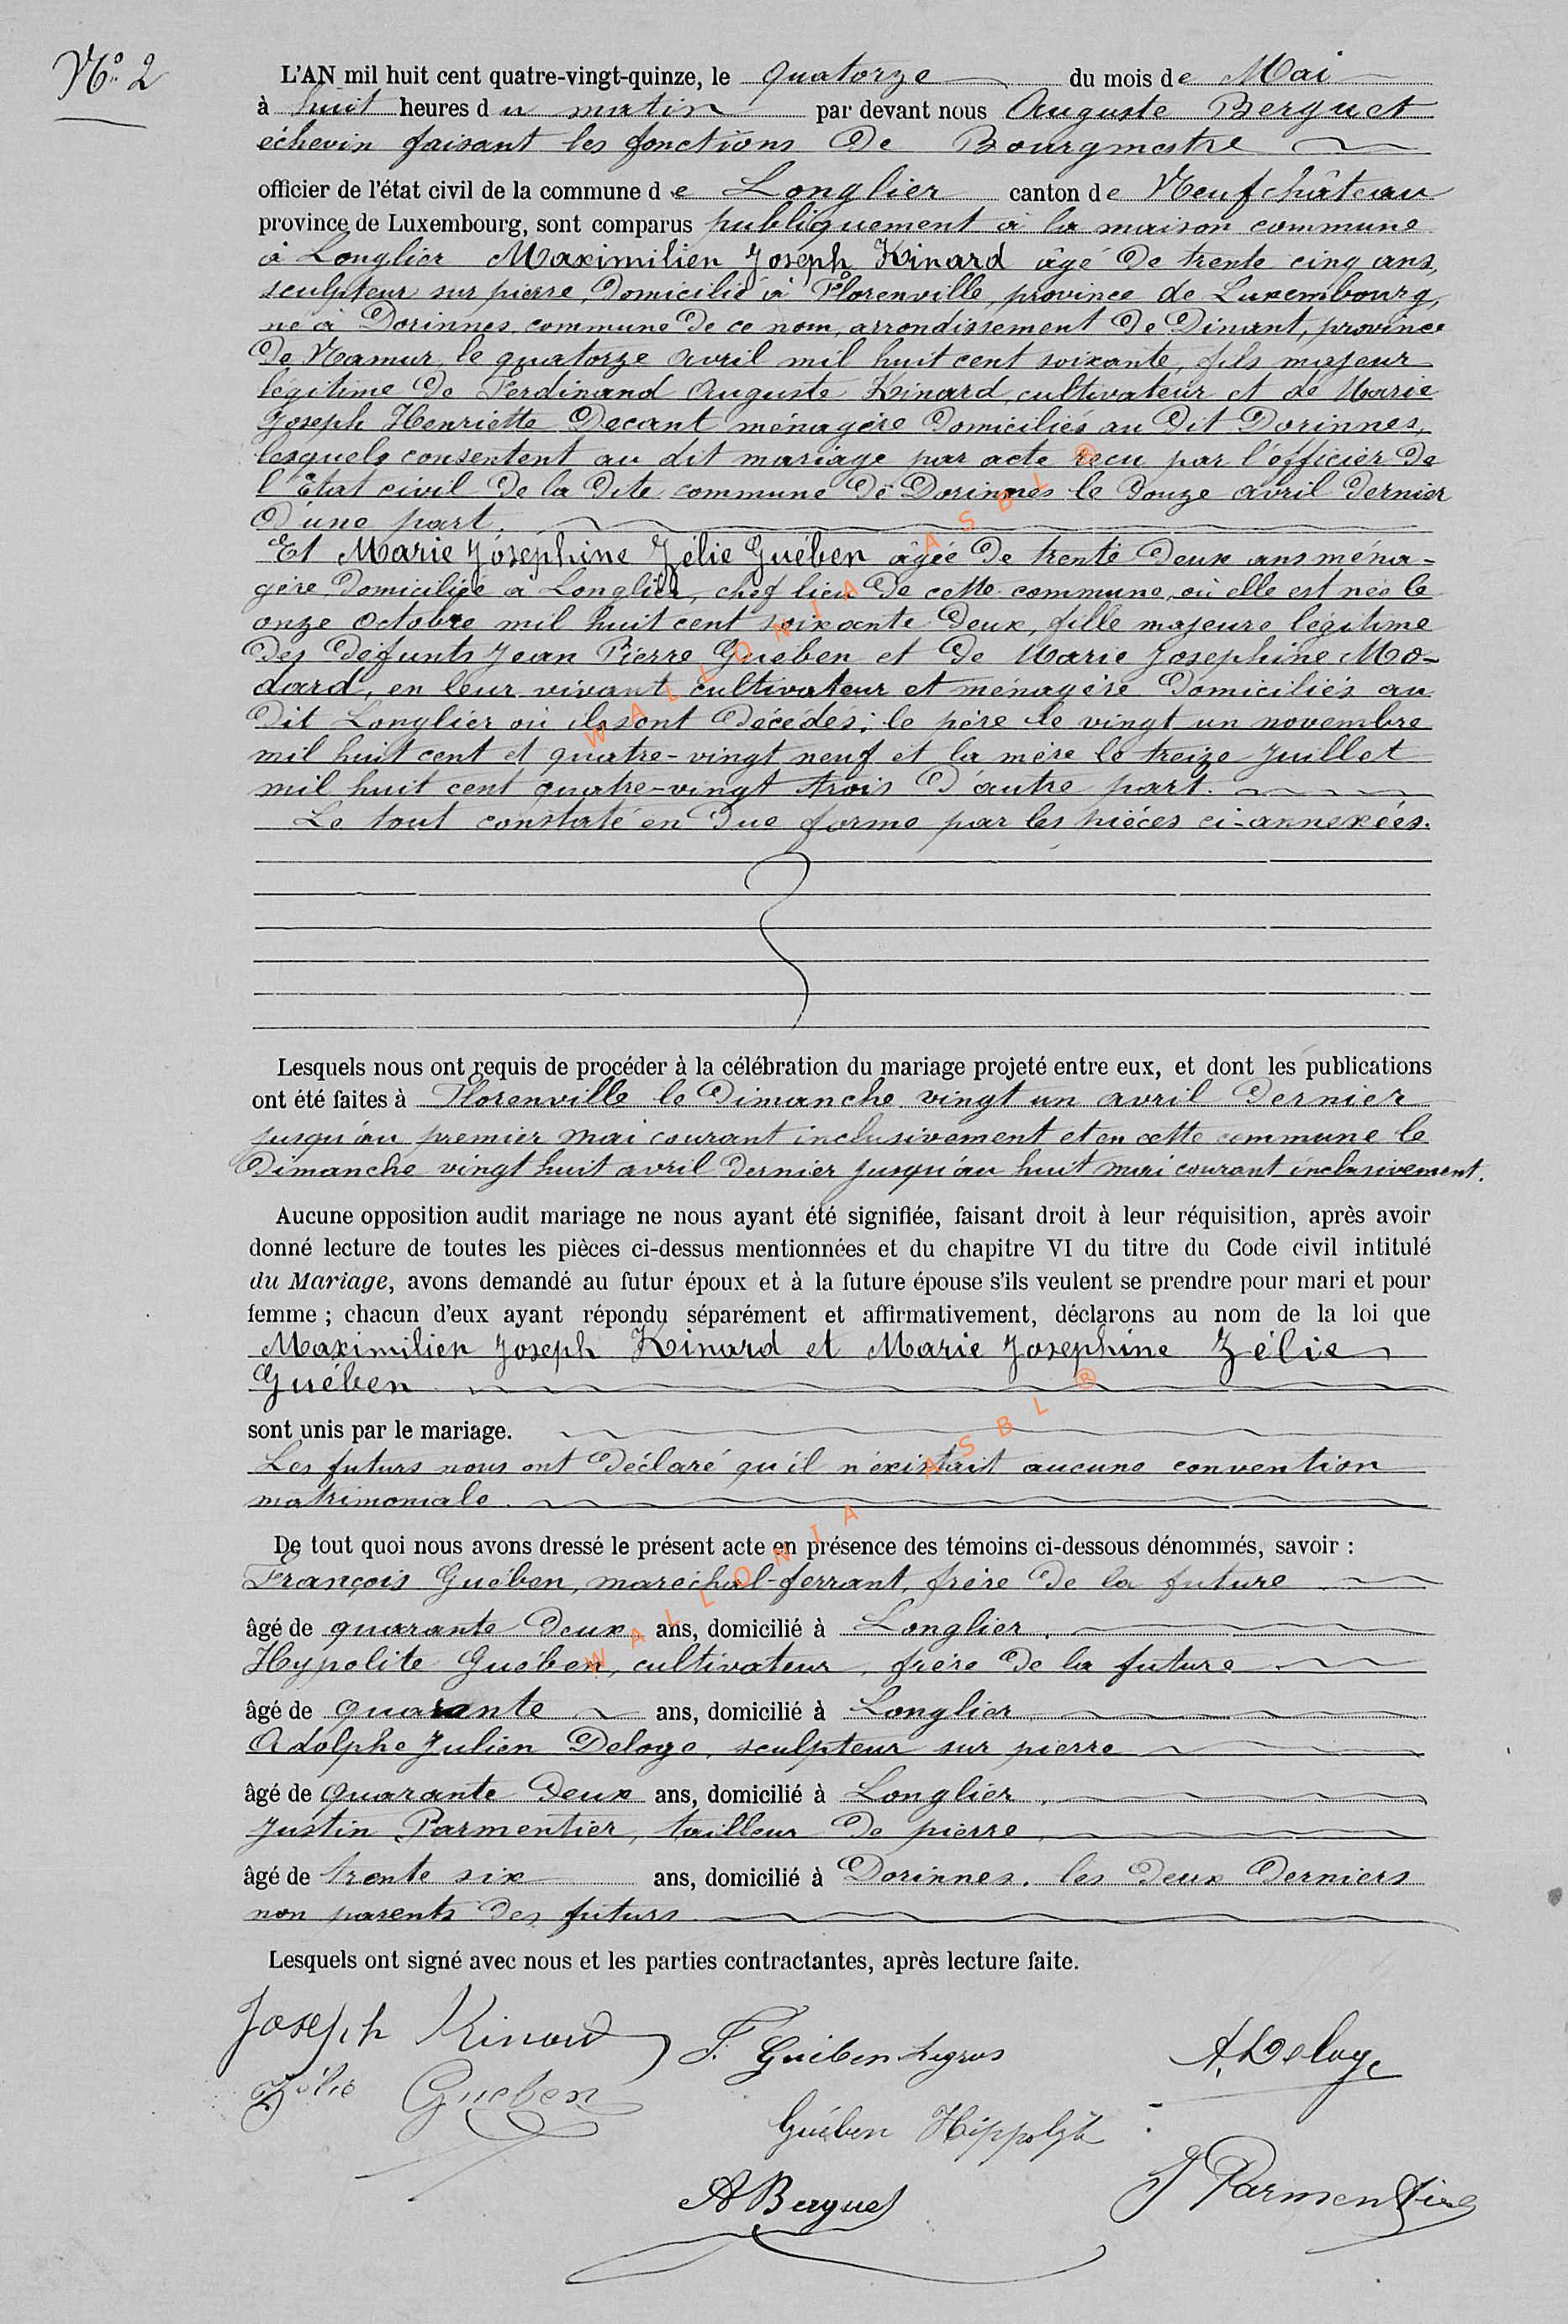 N° 2
L'AN mil huit cent quatre-vingt-quinze, le quatorze du mois de Mai
à huit heures du matin par devant nous Auguste Berguet
échevin faisant les fonctions de Bourgmestre
officier de l'état civil de la commune de Longlier canton de Neufchâteau
province de Luxembourg, sont comparus publiquement à la maison commune
à Longlier Maximilien Joseph Kinard âgé de trente cinq ans,
sculpteur sur pierre, domicilié à Florenville, province de Luxembourg,
né à Dorinnes, commune de ce nom, arrondissement de Dinant, province
de Namur, le quatorze avril mil huit cent soixante, fils majeur
légitime de Ferdinand Auguste Kinard, cultivateur et de Marie
Joseph Henriette Decant ménagère domiciliés au dit Dorinnes,
lesquels consentent au dit mariage par acte reçu par l'officier de
l'Etat civil de la dite commune de Dorinnes le douze avril dernier
d'une part.
Et Marie Joséphine Zélie Guében âgée de trente deux ans ména-
gère, domiciliée à Longlier, chef lieu de cette commune, où elle est née le
onze Octobre mil huit cent soixante deux, fille majeure légitime
des défunts Jean Pierre Guében et de Marie Josephine Mo-
dard, en leur vivant cultivateur et ménagère domiciliés au
dit Longlier où ils sont décédés; le père le vingt un novembre
mil huit cent et quatre-vingt neuf et la mère le treize Juillet
mil huit cent quatre-vingt trois d'autre part.
Le tout constaté en due forme par les pièces ci-annexées.
Lesquels nous ont requis de procéder à la célébration du mariage projeté entre eux, et dont les publications
ont été faites à Florenville le dimanche vingt un avril dernier
jusqu'au premier mai courant inclusivement et en cette commune le
dimanche vingt huit avril dernier jusqu'au huit mai courant inclusivement.
Aucune opposition audit mariage ne nous ayant été signifiée, faisant droit à leur réquisition, après avoir
donné lecture de toutes les pièces ci-dessus mentionnées et du chapitre VI du titre du Code civil intitulé
du Mariage, avons demandé au futur époux et à la future épouse s'ils veulent se prendre pour mari et pour
femme ; chacun d'eux ayant répondu séparément et affirmativement, déclarons au nom de la loi que
Maximilien Joseph Kinard et Marie Josephine Zélie
Guében
sont unis par le mariage.
Les futurs nous ont déclaré qu'il n'existait aucune convention
matrimoniale.
De tout quoi nous avons dressé le présent acte en présence des témoins ci-dessous dénommés, savoir :
François Guében, maréchal-ferrant, frère de la future
âgé de quarante deux ans, domicilié à Longlier.
Hypolite Guében, cultivateur, frère de la future
âgé de quarante ans, domicilié à Longlier
Adolphe Julien Deloge, sculpteur sur pierre
âgé de quarante deux ans, domicilié à Longlier.
Justin Parmentier, tailleur de pierre
âgé de trente six ans, domicilié à Dorinnes. les deux derniers
non parents des futurs.
Lesquels ont signé avec nous et les parties contractantes, après lecture faite.
Joseph Kinard F. Guében Legros A. Deloge
Zélie Gueben
Guében Hippolyte
A Berguet J Parmentier
WALLONIA ASBL ®
WALLONIA ASBL ®